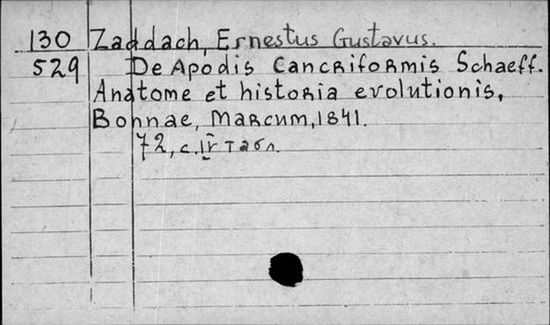 130 Zaddach, Ernestus Gustavus.
529 De Apodis Cancriformis Schaeff.
Anatome et historia evolutionis,
Bonnae, Marcum, 1841.
72, c. IV табл.